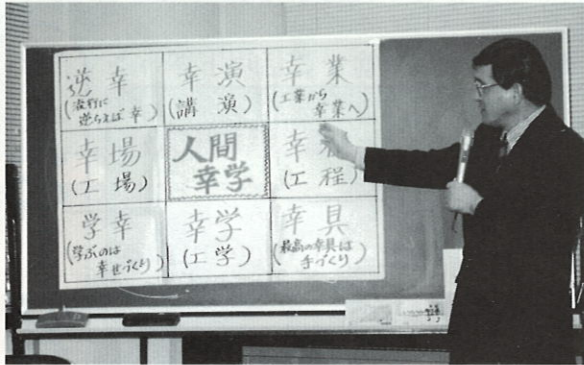 逆幸
(流行に
逆らえば幸)
幸演
(講演)
幸業
(工業から
幸業へ)
幸場
(工場)
人間
幸学
幸程
(工程)
学幸
(学ぶのは
幸せづくり)
幸学
(工学)
幸具
(最高の幸具は
手づくり)